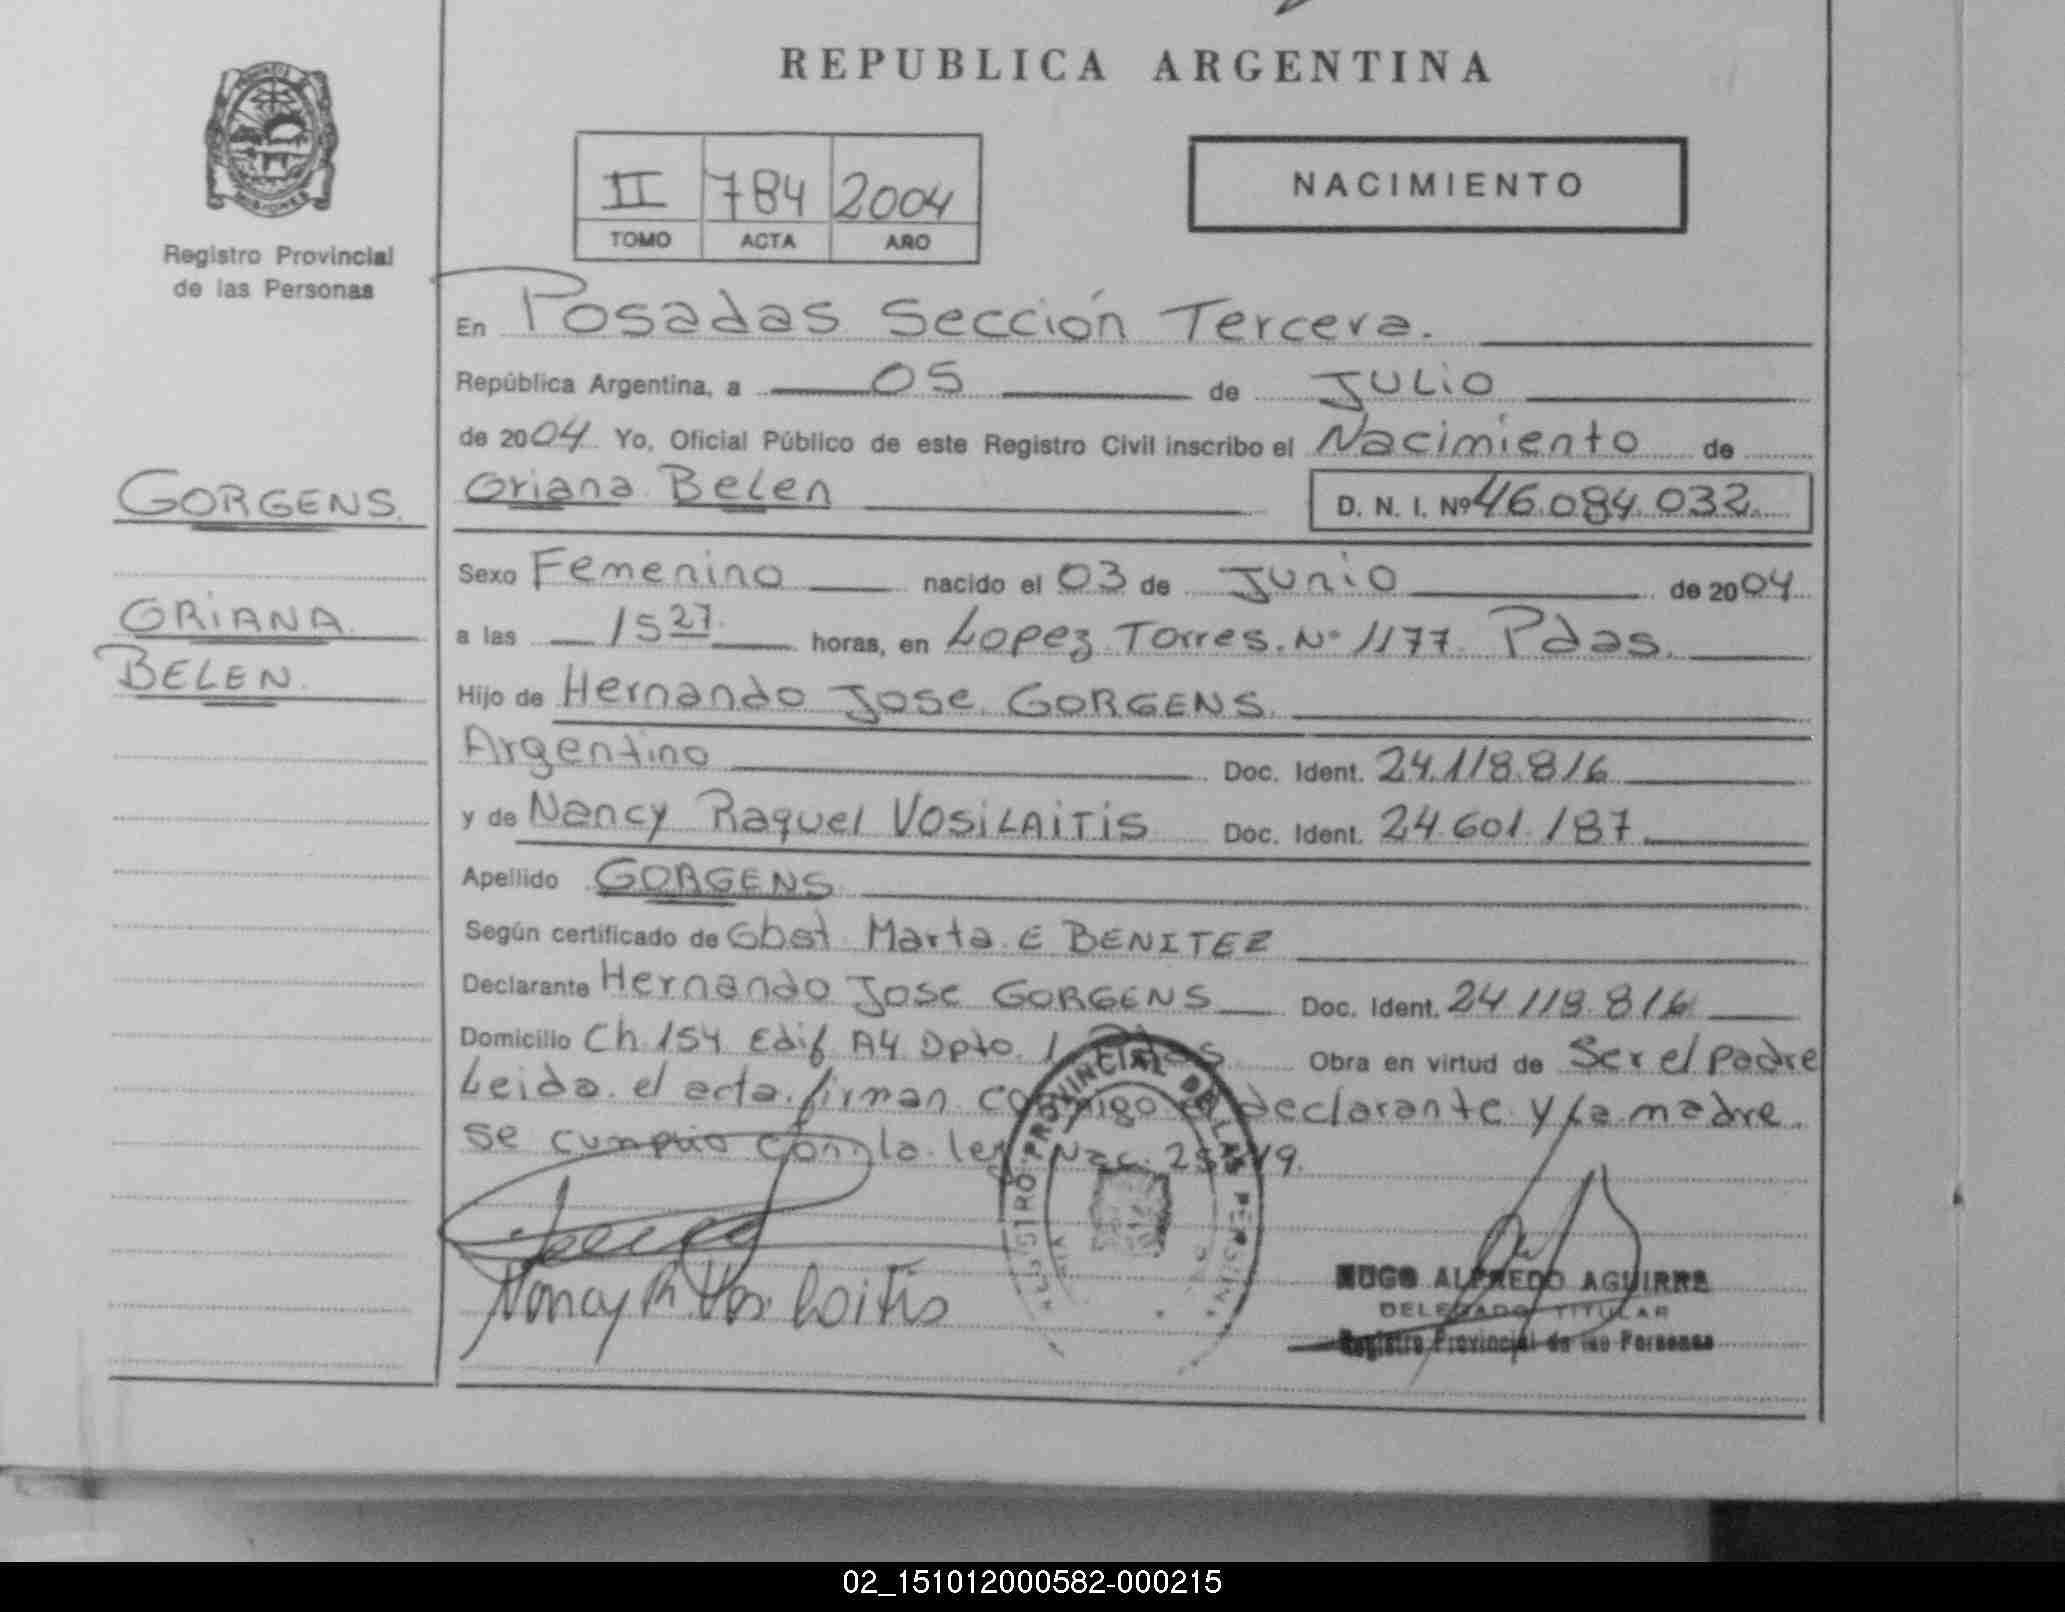 REPUBLICA ARGENTINA
MISIONES
Registro Provincial
de las Personas
II 784 2004
TOMO ACTA AÑO
NACIMIENTO
En Posadas Sección Tercera.
República Argentina, a 05 de Julio
de 2004 Yo, Oficial Público de este Registro Civil inscribo el Nacimiento de
Oriana Belen D. N. I. Nº 46.084.032
GORGENS.
ORIANA
BELEN.
Sexo Femenino nacido el 03 de Junio de 2004
a las 15 27 horas, en Lopez Torres. Nº 1177 Pdas.
Hijo de Hernando Jose GORGENS.
Argentino Doc. Ident. 24.118.816
y de Nancy Raquel VOSILAITIS Doc. Ident. 24.601.187
Apellido GORGENS
Según certificado de Obst Marta E BENITEZ
Declarante Hernando Jose GORGENS Doc. Ident. 24.118.816
Domicilio Ch 154 Edif A4 Dpto 1 Pdas Obra en virtud de Ser el padre
Leida el acta firman conmigo el declarante y la madre.
se cumplio con la ley Nac.
REGISTRO PROVINCIAL DE LAS PERSONAS
Nancy R Vosilaitis
HUGO ALFREDO AGUIRRE
DELEGADO TITULAR
Registro Provincial de las Personas
02_151012000582-000215